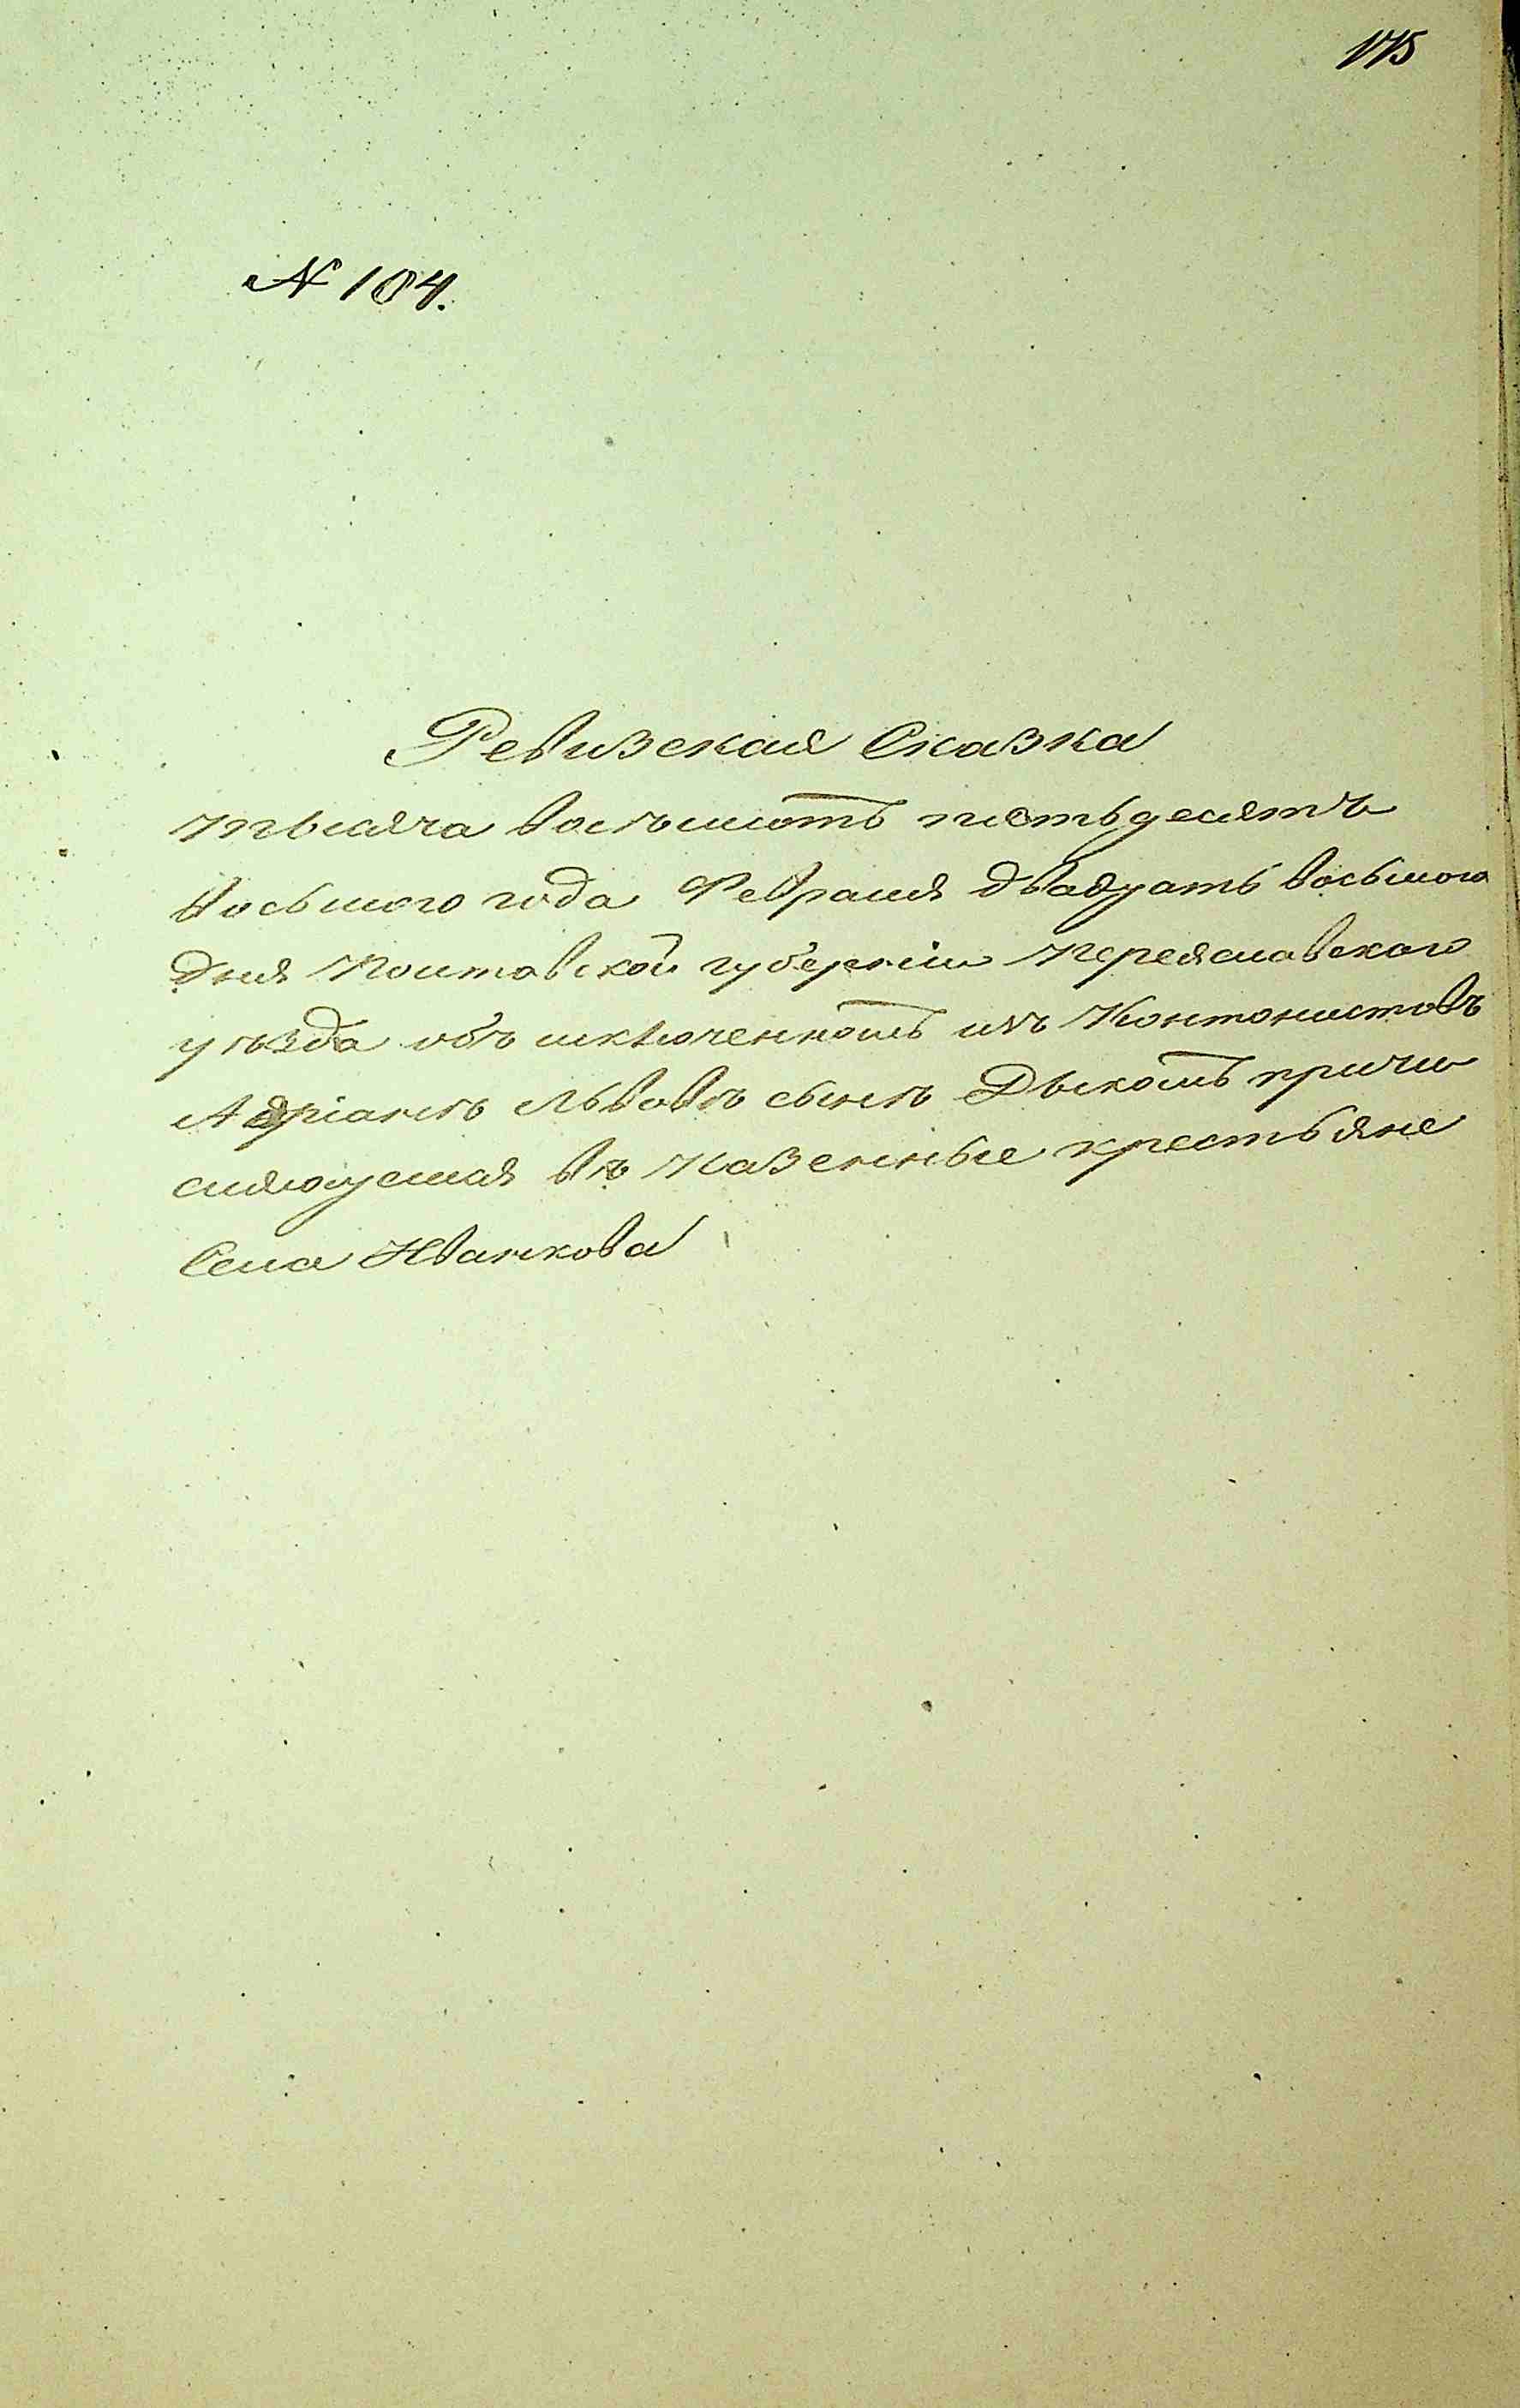 175
№ 104.
Ревизская Сказка
тысяча восъмъсотъ пятьдесятъ
восьмого года Февраля двадцать восьмого
дня Полтавской губерніи Переяславского
уѣзда объ исключенномъ изъ Контонистовъ
Адріанѣ Львовѣ сынѣ Дыкомъ причи
сляющемся въ Казенные крестьяне
Села Иванкова